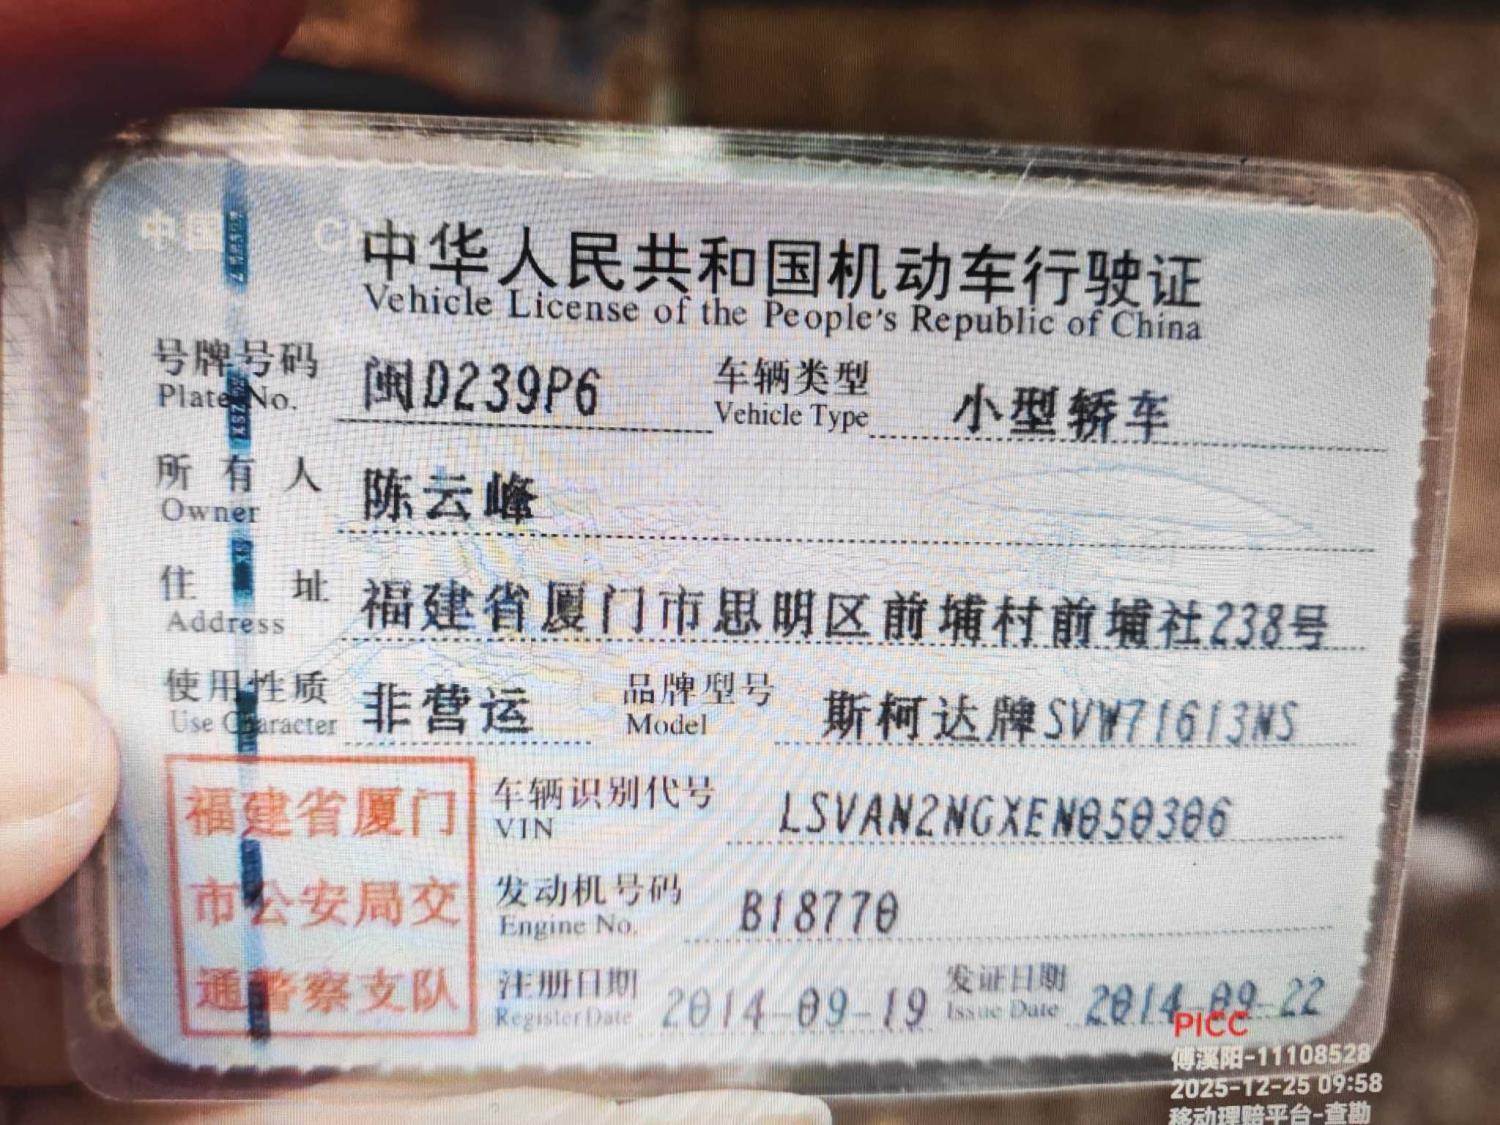 中国 CHINA
中华人民共和国机动车行驶证
Vehicle License of the People's Republic of China
号牌号码 闽D239P6 车辆类型 小型轿车
Plate No. Vehicle Type
所有人 陈云峰
Owner
住址 福建省厦门市思明区前埔村前埔社238号
Address
使用性质 非营运 品牌型号 斯柯达牌SVW71613NS
Use Character Model
福建省厦门
市公安局交
通警察支队
车辆识别代号 LSVAN2NGXEN050306
VIN
发动机号码 B18770
Engine No.
注册日期 2014-09-19 发证日期 2014-09-22
Register Date Issue Date
PICC
傅溪阳-11108528
2025-12-25 09:58
移动理赔平台-查勘